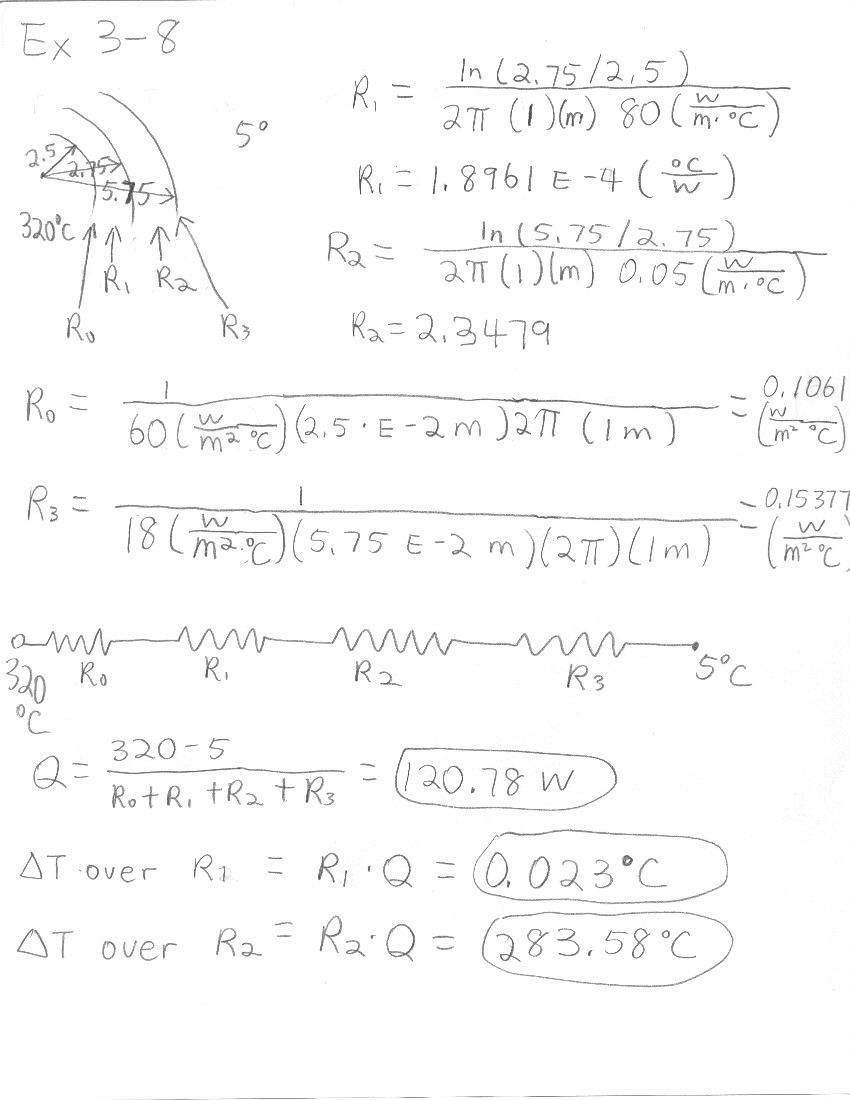 Ex 3-8
2.5
2.75
5.75
5°
320°C
R₁ R₂
R₀ R₃
R₁ = ln (2.75/2.5) / 2π (1)(m) 80 (W/m·°C)
R₁ = 1.8961 E-4 (°C/W)
R₂ = ln (5.75/2.75) / 2π (1)(m) 0.05 (W/m·°C)
R₂ = 2.3479
R₀ = 1 / 60 (W/m² °C)(2.5 · E-2 m) 2π (1m) = 0.1061 (W/m² °C)
R₃ = 1 / 18 (W/m²·°C)(5.75 E-2 m)(2π)(1m) = 0.15377 (W/m² °C)
320 °C R₀ R₁ R₂ R₃ 5°C
Q = 320-5 / R₀+R₁+R₂+R₃ = 120.78 W
ΔT over R₁ = R₁ · Q = 0.023°C
ΔT over R₂ = R₂·Q = 283.58°C